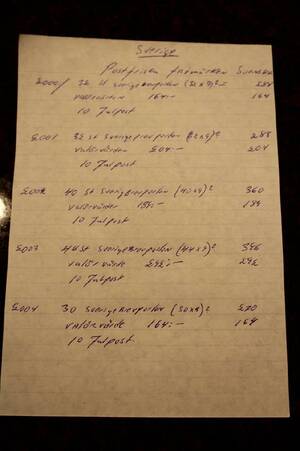 Sverige
Postfriska frimärken Svenska
2000 32 st Sverigebrevporton (32x9)= 288
valörvärden 164:- 164
10 Julpost
2001 32 st Sverigebrevporton (32x9)= 288
valörvärden 204:- 204
10 Julpost
2002 40 st Sverigebrevporton (40x9)= 360
valörvärden 189:- 189
10 Julpost
2003 44 st Sverigebrevporton (44x9)= 396
valörvärde 292:- 292
10 Julpost
2004 30 Sverigebrevporton (30x9)= 270
valörvärde 164:- 164
10 Julpost